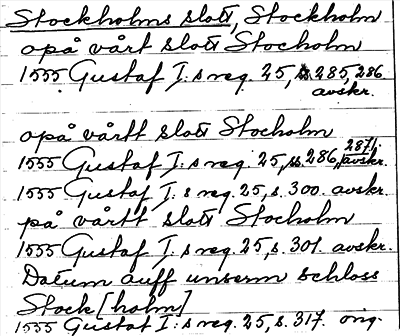 Stockholms slott, Stockholm
opå vårt slott Stocholm
1555 Gustaf I:s reg. 25, ss 285, 286
avskr.
opå vårtt slott Stocholm
1555 Gustaf I:s reg. 25, ss. 286, 287, avskr.
1555 Gustaf I:s reg. 25, s. 300. avskr.
på vårtt slott Stocholm
1555 Gustaf I:s reg. 25, s. 301. avskr.
Datum auff unserm schloss
Stock[holm]
1555 Gustaf I:s reg. 25, s. 317. orig.